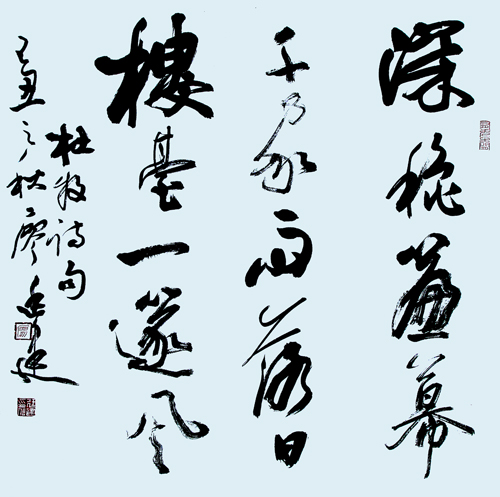 深秋簾幕
千家雨落日
樓臺一篴風
杜牧詩句
己丑之秋廖